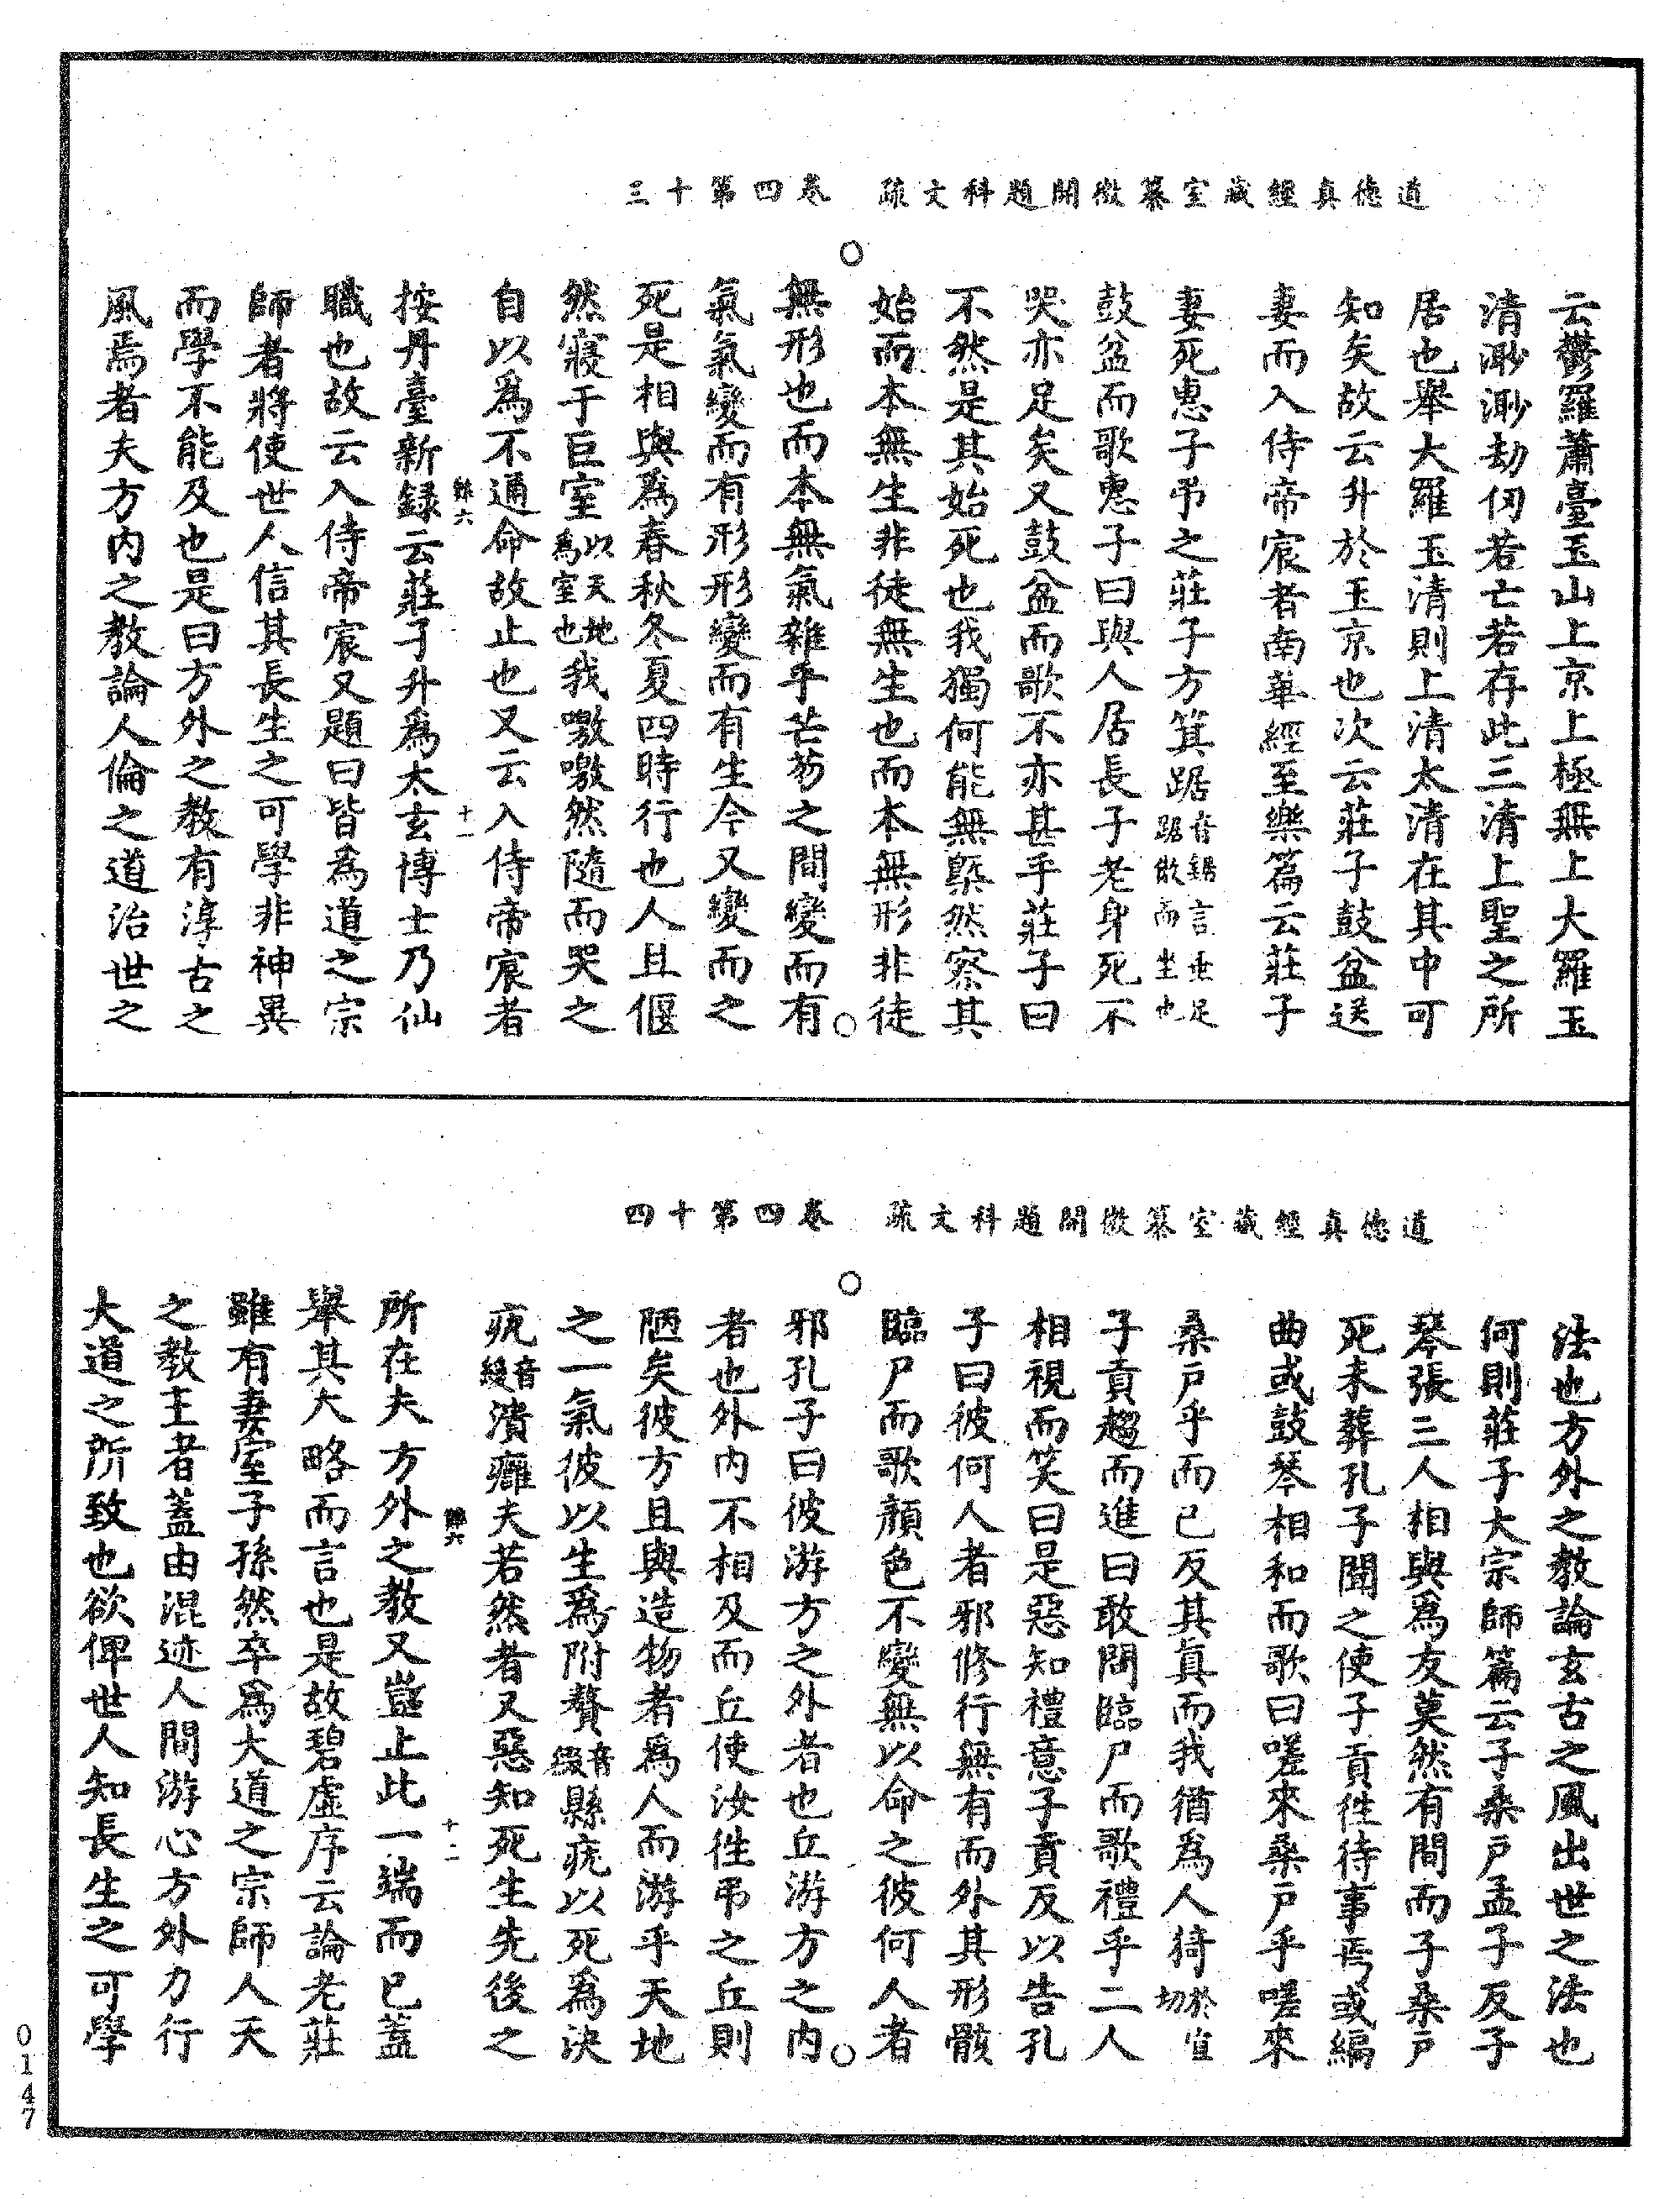 道德真經藏室纂微開題科文疏　卷四第十三
云鬱羅蕭臺玉山上京上極無上大羅玉
清渺渺劫仞若亡若存此三清上聖之所
居也舉大羅玉清則上清太清在其中可
知矣故云升於玉京也次云莊子鼓盆送
妻而入侍帝宸者南華經至樂篇云莊子
妻死惠子弔之莊子方箕踞音鋸言垂足踞傲而坐也
鼓盆而歌惠子曰與人居長子老身死不
哭亦足矣又鼓盆而歌不亦甚乎莊子曰
不然是其始死也我獨何能無槩然察其
始而本無生非徒無生也而本無形非徒
無形也而本無氣雜乎芒芴之間變而有
氣氣變而有形形變而有生今又變而之
死是相與爲春秋冬夏四時行也人且偃
然寢于巨室以天地爲室也我噭噭然隨而哭之
自以爲不通命故止也又云入侍帝宸者
十一
按丹臺新録云莊子升爲太玄博士乃仙
職也故云入侍帝宸又題曰皆爲道之宗
師者將使世人信其長生之可學非神異
而學不能及也是曰方外之教有淳古之
風焉者夫方內之教論人倫之道治世之
道德真經藏室纂微開題科文疏　卷四第十四
法也方外之教論玄古之風出世之法也
何則莊子大宗師篇云子桑戶孟子反子
琴張三人相與爲友莫然有間而子桑戶
死未葬孔子聞之使子貢徃待事焉或編
曲或鼓琴相和而歌曰嗟來桑戶乎嗟來
桑戶乎而已反其眞而我猶爲人猗於宜切
子貢趨而進曰敢問臨尸而歌禮乎二人
相視而笑曰是惡知禮意子貢反以告孔
子曰彼何人者邪修行無有而外其形骸
臨尸而歌顔色不變無以命之彼何人者
邪孔子曰彼游方之外者也丘游方之內
者也外內不相及而丘使汝徃弔之丘則
陋矣彼方且與造物者爲人而游乎天地
之一氣彼以生爲附贅音綴縣疣以死爲決
疣音緩潰癰夫若然者又惡知死生先後之
十二
所在夫方外之教又豈止此一端而已蓋
舉其大略而言也是故碧虛序云論老莊
雖有妻室子孫然卒爲大道之宗師人天
之教主者蓋由混迹人間游心方外力行
大道之所致也欲俾世人知長生之可學
0147